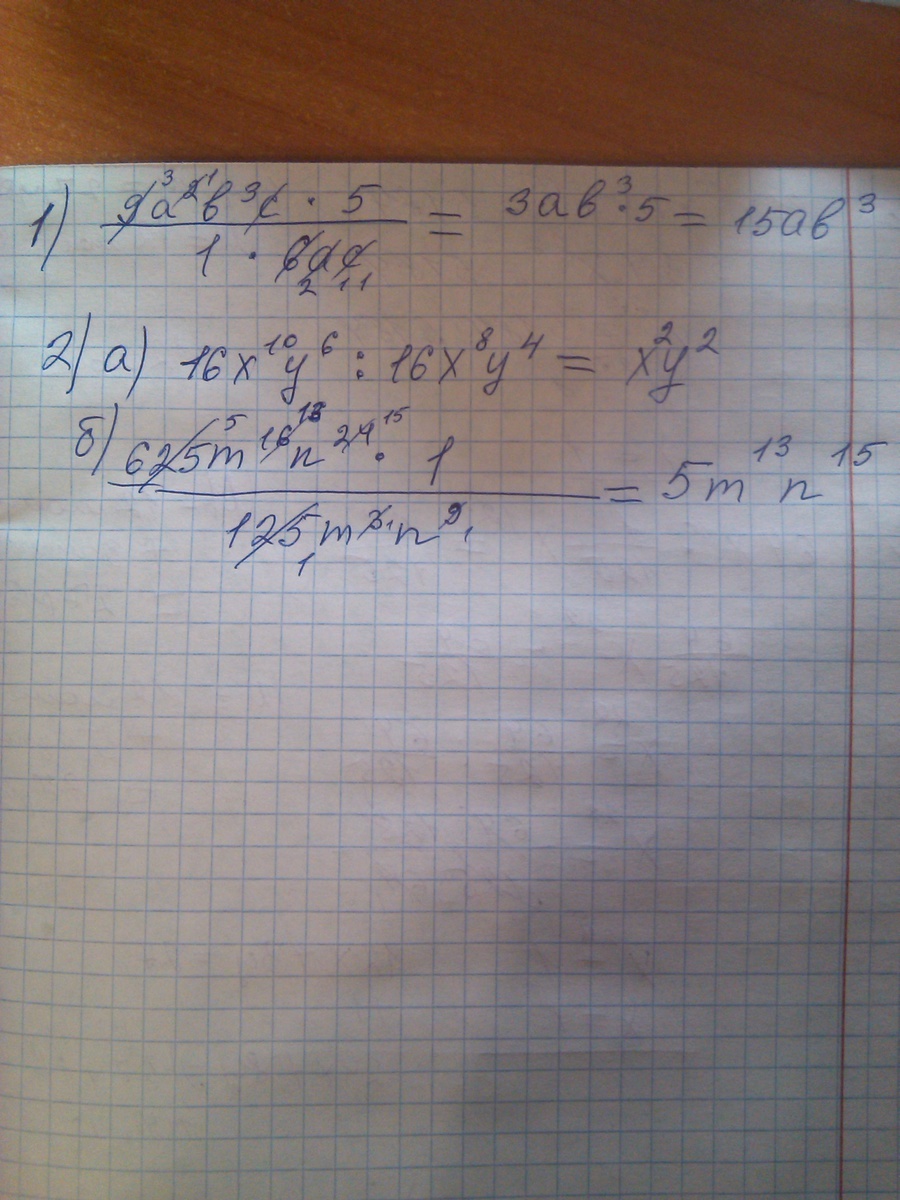 1) (9a²b³c · 5)/(1 · 6ac) = 3ab³·5 = 15ab³
2) а) 16x¹⁰y⁶ : 16x⁸y⁴ = x²y²
б) (625m¹⁶n²⁴ · 1)/(125m³n⁹) = 5m¹³n¹⁵